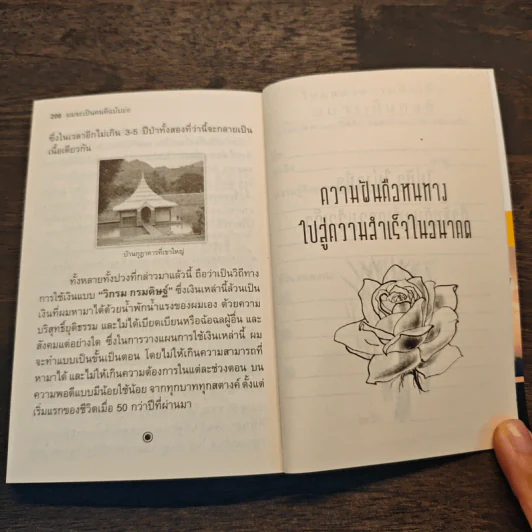 206 ผมจะเป็นคนดีฉบับย่อ
ซึ่งในเวลาอีกไม่เกิน 3-5 ปีป่าทั้งสองที่ว่านี้จะกลายเป็น
เนื้อเดียวกัน
บ้านกูฏาคารที่เขาใหญ่
ทั้งหลายทั้งปวงที่กล่าวมาแล้วนี้ ถือว่าเป็นวิถีทาง
การใช้เงินแบบ "วิกรม กรมดิษฐ์" ซึ่งเงินเหล่านี้ล้วนเป็น
เงินที่ผมหามาได้ด้วยน้ำพักน้ำแรงของผมเอง ด้วยความ
บริสุทธิ์ยุติธรรม และไม่ได้เบียดเบียนหรือฉ้อฉลผู้อื่น และ
สังคมแต่อย่างใด ซึ่งในการวางแผนการใช้เงินเหล่านี้ ผม
จะทำแบบเป็นขั้นเป็นตอน โดยไม่ให้เกินความสามารถที่
หามาได้ และไม่ให้เกินความต้องการในแต่ละช่วงตอน บน
ความพอดีแบบมีน้อยใช้น้อย จากทุกบาททุกสตางค์ ตั้งแต่
เริ่มแรกของชีวิตเมื่อ 50 กว่าปีที่ผ่านมา
ความฝันคือหนทาง
ไปสู่ความสำเร็จในอนาคต